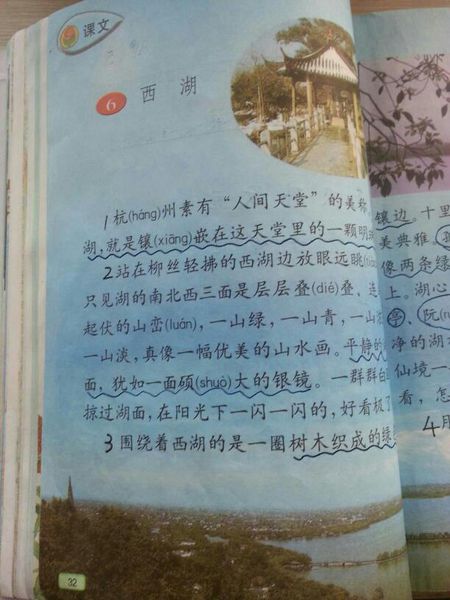 课文
6 西湖
1杭(háng)州素有“人间天堂”的美称
湖,就是镶(xiāng)嵌在这天堂里的一颗明
2站在柳丝轻拂的西湖边放眼远眺
只见湖的南北西三面是层层叠(dié)叠、连
起伏的山峦(luán),一山绿,一山青,一山
一山淡,真像一幅优美的山水画。平静的
面,犹如一面硕(shuò)大的银镜。一群群白
掠过湖面,在阳光下一闪一闪的,好看极了
3围绕着西湖的是一圈树木织成的绿
32
镶边。十里
美典雅。
像两条绿
上。湖心
亭、阮
净的湖水
仙境一
看,怎
4月